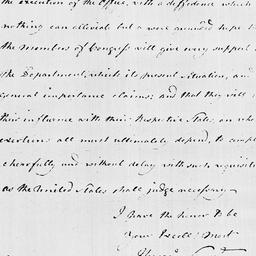 the execution of the Office, with a diffidence which
nothing can alleviate but a well grounded hope t
the Members of Congress will give every support
the Department, which its present situation, and
general importance claims; and that they will
their influence with their Respective States, on who
exertions all must ultimately depend, to comply
chearfully and without delay with such requisitio
as the United States shall judge necessary
I have the honor to be
Your Excell: Most